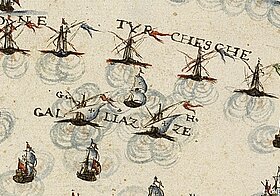 ONE TVRCHESCHE
G. H.
GAL LIAZ ZE